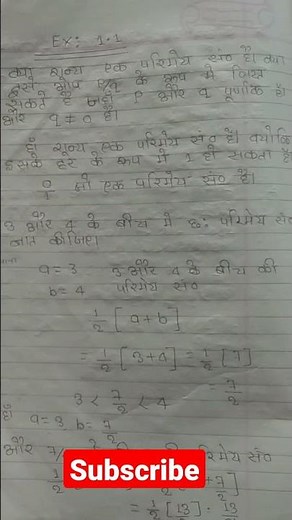 Ex: 1.1
क्या शून्य एक परिमेय सं० है। क्या
इसे आप P/q के रूप में लिख
सकते है जहाँ P और q पूर्णांक है।
और q ≠ 0 है।
हाँ शून्य एक परिमेय सं० है। क्योंकि
इसके हर के रूप में 1 हो सकता है।
0/1 जो एक परिमेय सं० है।
3 और 4 के बीच में 6: परिमेय सं०
ज्ञात कीजिए।
a = 3 3 और 4 के बीच की
b = 4 परिमेय सं०
1/2 [a+b]
= 1/2 [3+4] = 1/2 [7]
= 7/2
3 < 7/2 < 4
a = 3, b = 7/2
और 7/ परिमेय सं०
1/2 + 7/2]
= 1/2 [13] . 13
Subscribe